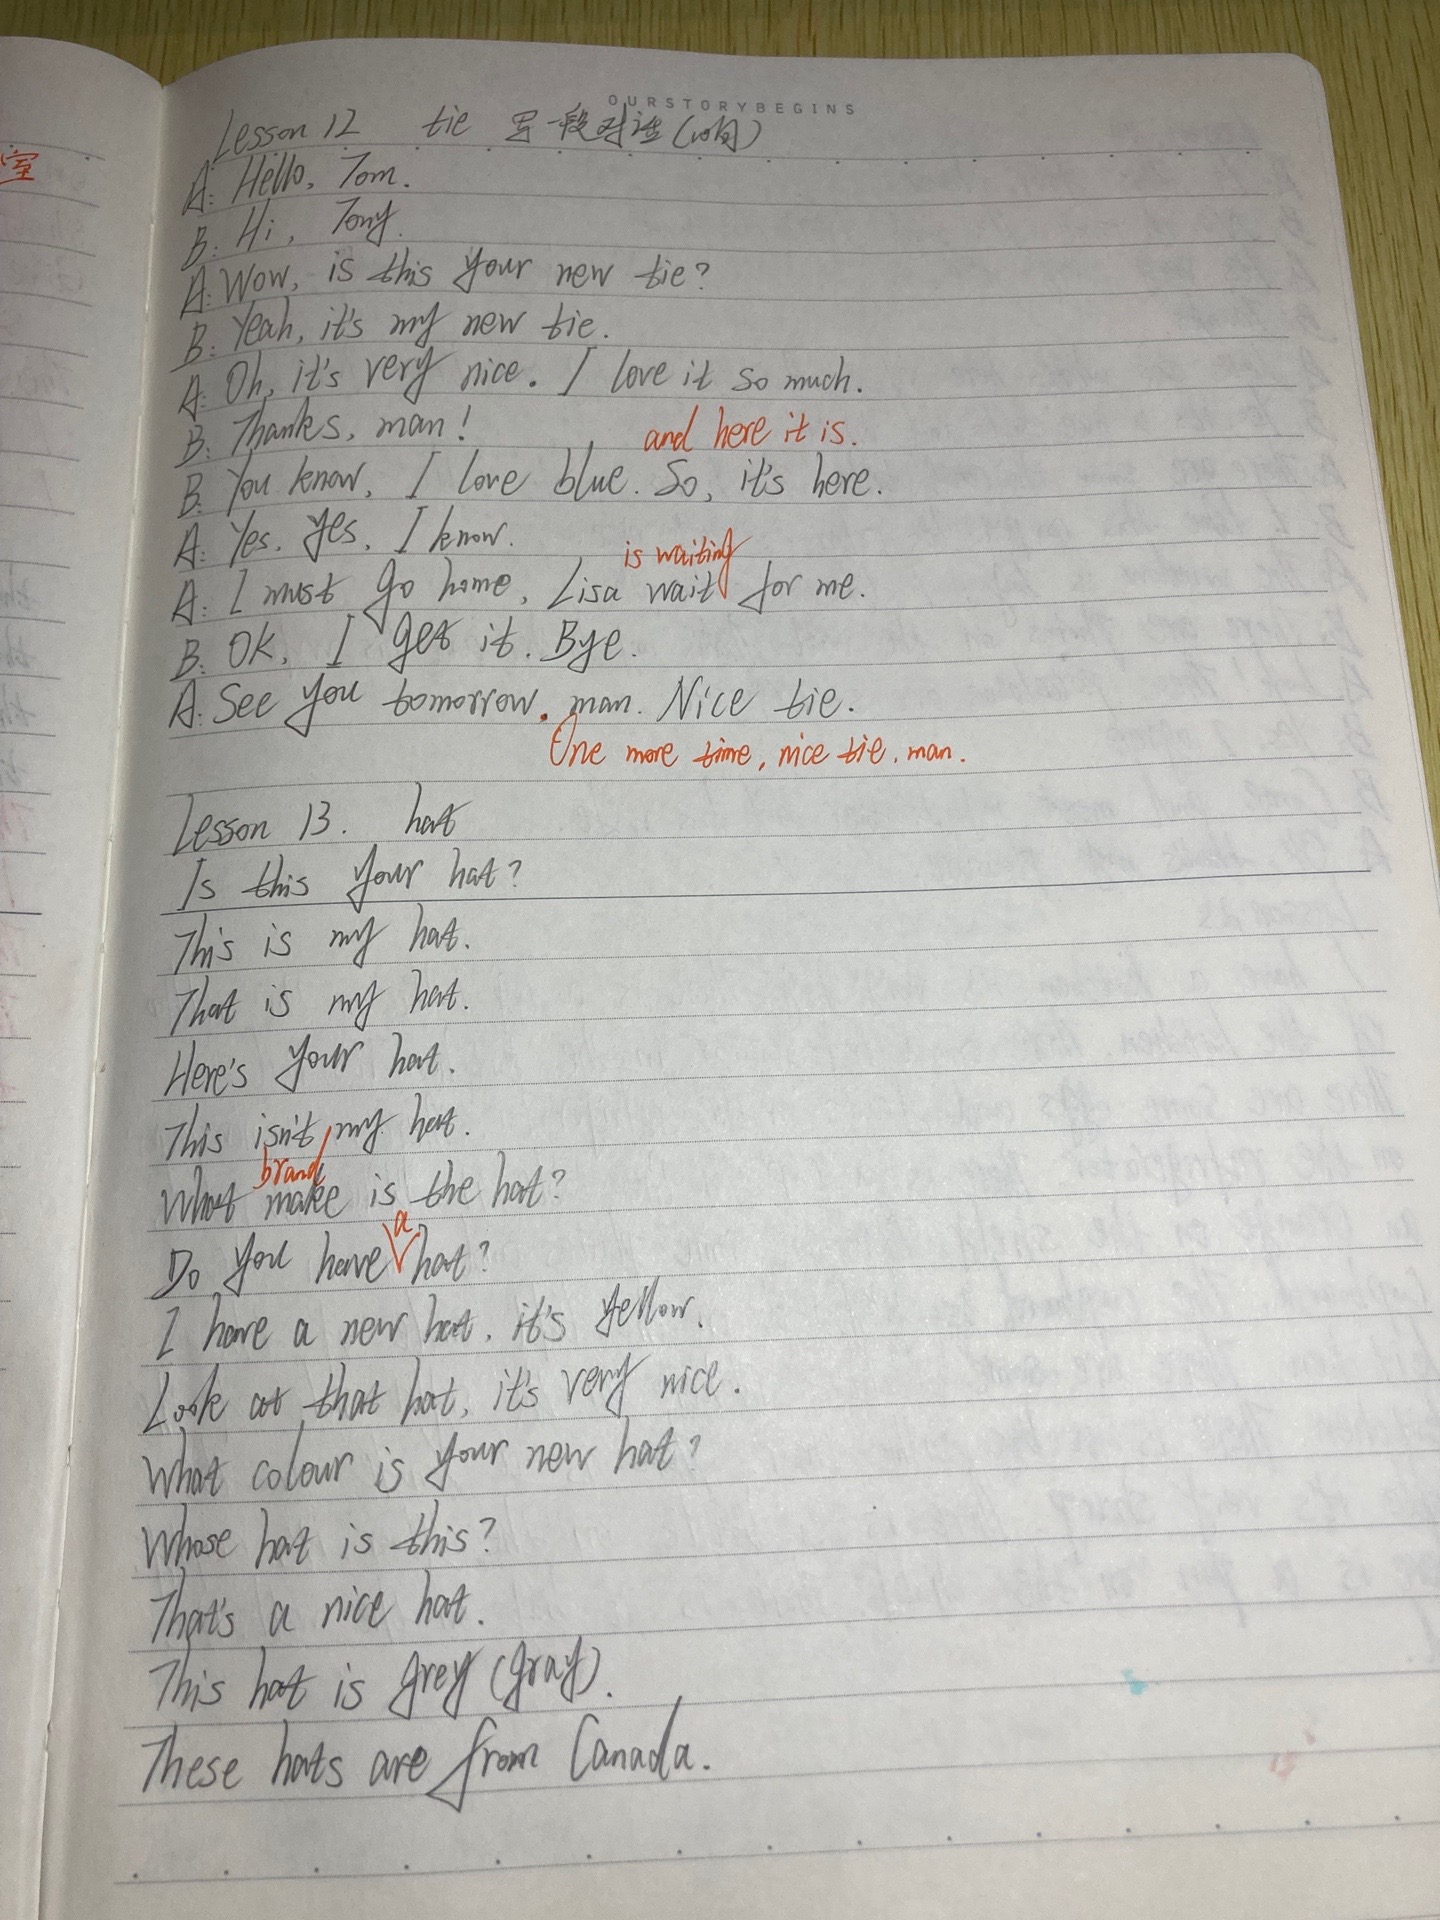 OURSTORYBEGINS
Lesson 12 tie 写一段对话(10句)
室
A: Hello, Tom.
B: Hi, Tony.
A: Wow, is this your new tie?
B: Yeah, it's my new tie.
A: Oh, it's very nice. I love it so much.
B: Thanks, man!
and here it is.
B: You know, I love blue. So, it's here.
A: Yes, yes, I know.
is waiting
A: I must go home, Lisa wait for me.
B: OK, I get it. Bye.
A: See you tomorrow, man. Nice tie.
One more time, nice tie, man.
Lesson 13. hat
Is this your hat?
This is my hat.
That is my hat.
Here's your hat.
This isn't my hat.
brand
What make is the hat?
a
Do you have hat?
I have a new hat, it's yellow.
Look at that hat, it's very nice.
What colour is your new hat?
Whose hat is this?
That's a nice hat.
This hat is grey (gray).
These hats are from Canada.